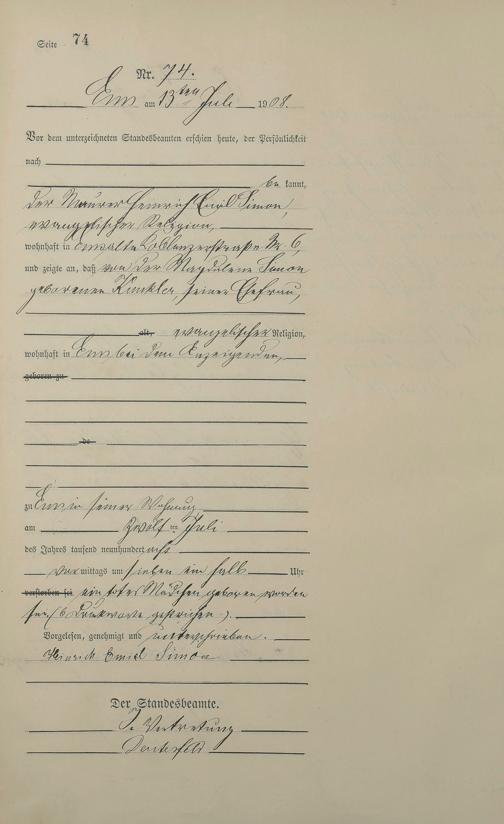 Seite 74
Nr. 74.
Ems am 13ten Juli 1908.
Vor dem unterzeichneten Standesbeamten erschien heute, der Persönlichkeit
nach
be kannt,
der Maurer Heinrich Emil Simon,
evangelischer Religion,
wohnhaft in Ems, alte Coblenzerstraße Nr. 6,
und zeigte an, daß von der Magdalena Simon
geborenen Künkler, seiner Ehefrau,
alt, evangelischer Religion,
wohnhaft in Ems bei dem Anzeigenden,
geboren zu
de
zu Ems in seiner Wohnung
am Zwölften Juli
des Jahres tausend neunhundert acht
vor mittags um sieben ein halb Uhr
verstorben sei ein totes Mädchen geboren worden
sei, (6 Druckworte gestrichen).
Vorgelesen, genehmigt und unterschrieben.
Heinrich Emil Simon
Der Standesbeamte.
In Vertretung